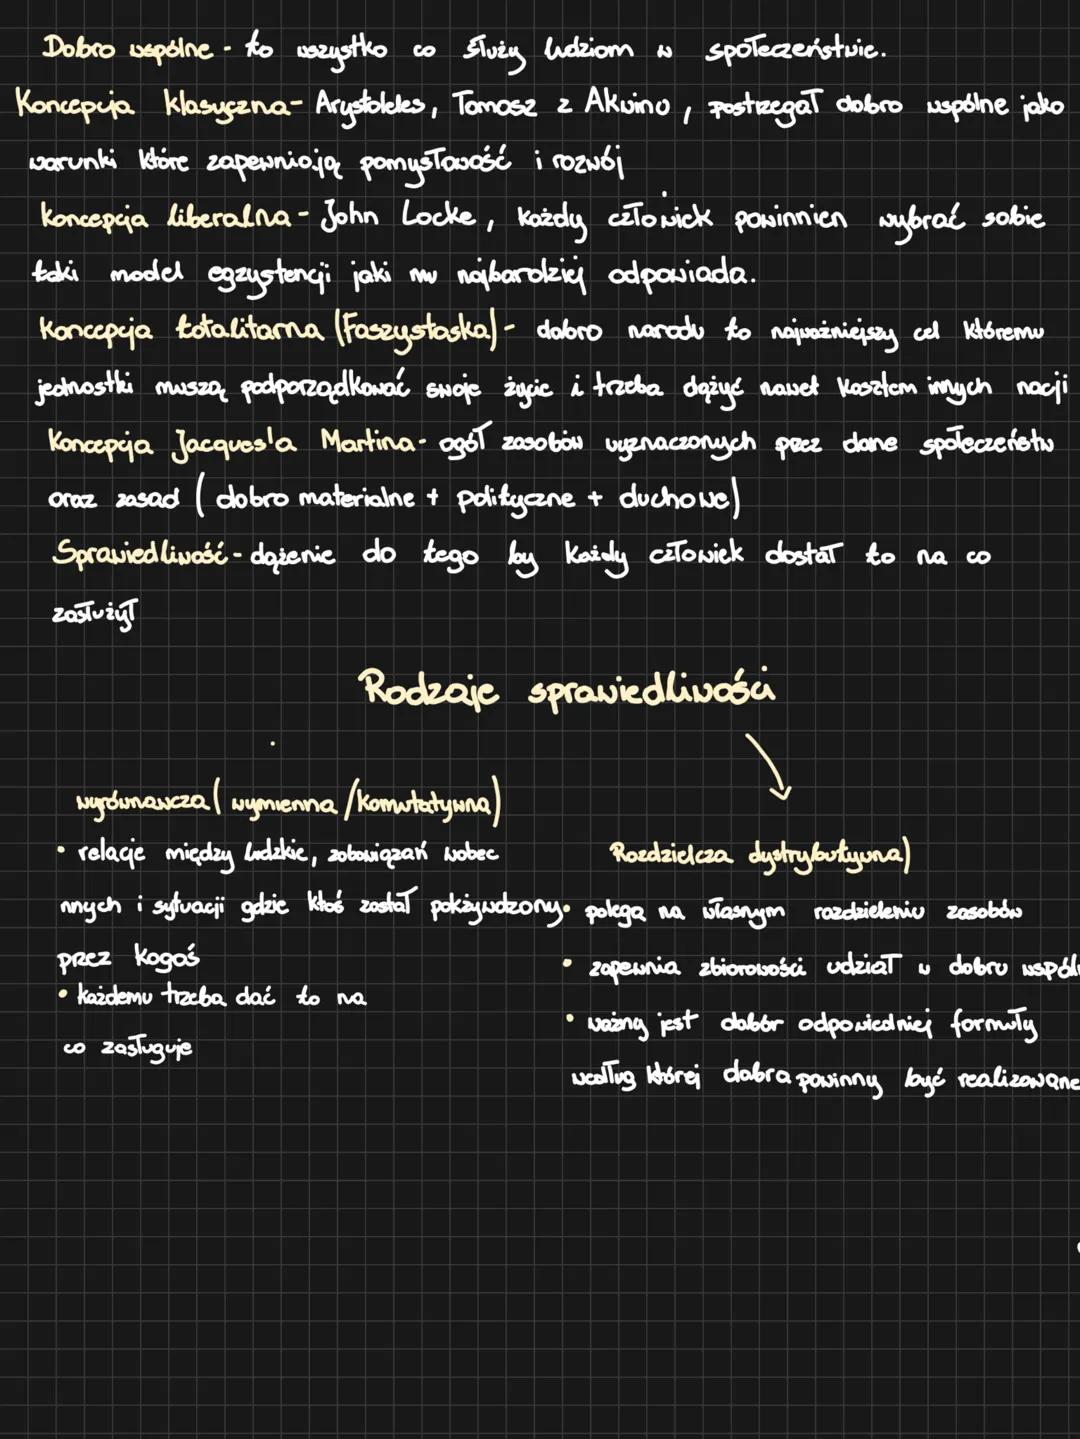 Dobro wspólne - to wszystko co służy ludziom w społeczeństwie.
Koncepcja klasyczna - Arystoteles, Tomasz z Akwinu, postrzegał dobro wspólne jako
warunki które zapewniają pomysłowość i rozwój
Koncepcja liberalna - John Locke, każdy człowiek powinnien wybrać sobie
taki model egzystencji jaki mu najbardziej odpowiada.
Koncepcja totalitarna (Faszystaska) - dobro narodu to najważniejszy cel któremu
jednostki muszą podporządkować swoje życie i trzeba dążyć nawet kosztem innych nacji
Koncepcja Jacques'a Martina - ogół zasobów wyznaczonych przez dane społeczeństw
oraz zasad (dobro materialne + polityczne + duchowe)
Sprawiedliwość - dążenie do tego by każdy człowiek dostał to na co
zasłużył
Rodzaje sprawiedliwości
wyrównawcza (wymienna /komutatywna)
• relacje między ludzkie, zobowiązań wobec
nnych i sytuacji gdzie ktoś został pokżywdzony
przez kogoś
• każdemu trzeba dać to na
co zasługuje
Rozdzielcza dystrybutywna)
• polega na własnym rozdzieleniu zasobów
• zapewnia zbiorowości udział w dobru wspóln
• ważny jest dobór odpowiedniej formuły
według której dobra powinny być realizowane